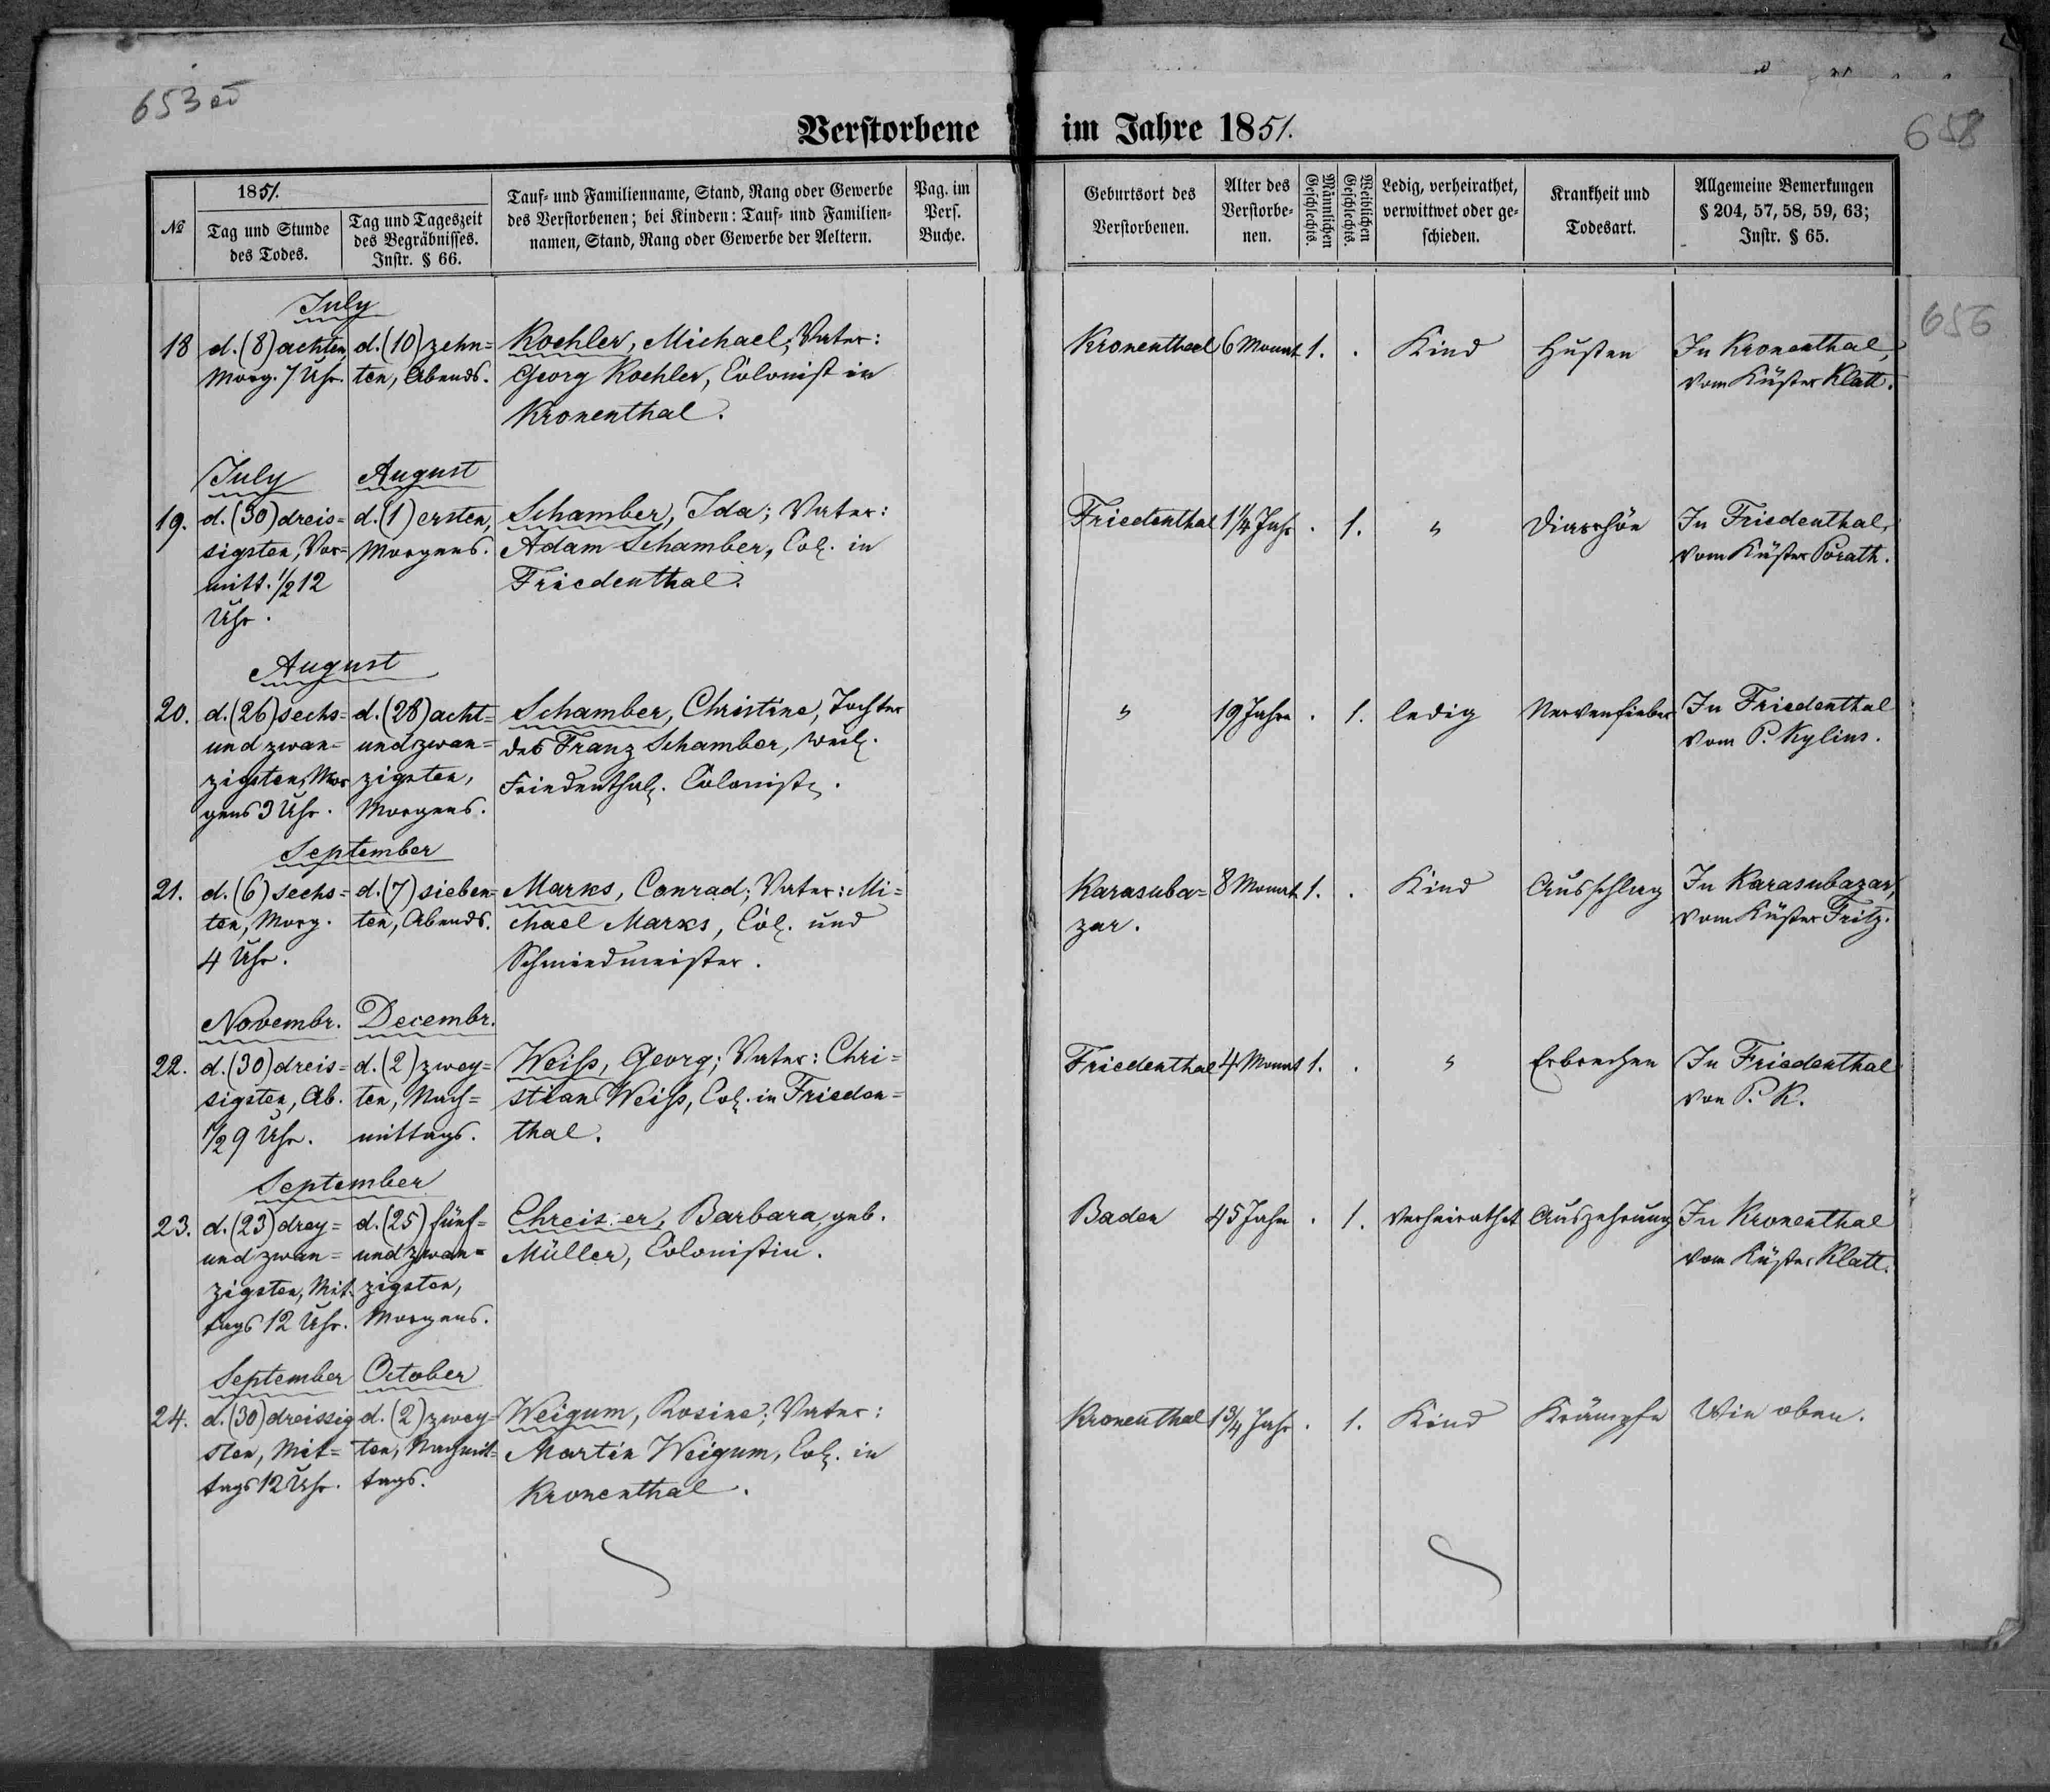 653 об
658
656
Verstorbene im Jahre 1851.
№
1851.
Tag und Stunde
des Todes.
Tag und Tageszeit
des Begräbnisses.
Instr. § 66.
Tauf- und Familienname, Stand, Rang oder Gewerbe
des Verstorbenen; bei Kindern: Tauf- und Familien-
namen, Stand, Rang oder Gewerbe der Aeltern.
Pag. im
Pers.
Buche.
Geburtsort des
Verstorbenen.
Alter des
Verstorbe-
nen.
Männlichen
Geschlechts.
Weiblichen
Geschlechts.
Ledig, verheirathet,
verwittwet oder ge-
schieden.
Krankheit und
Todesart.
Allgemeine Bemerkungen
§ 204, 57, 58, 59, 63;
Instr. § 65.
July
18
d. (8) achten,
Morg. 7 Uhr.
d. (10) zehn=
ten, Abends.
Koehler, Michael; Vater:
Georg Koehler, Colonist in
Kronenthal.
Kronenthal
6 Monat
1.
.
Kind
Husten
In Kronenthal,
vom Küster Klatt.
July
August
19.
d. (30) dreis=
sigsten, Vor=
mitt. 1/2 12
Uhr.
d. (1) ersten,
Morgens.
Schamber, Ida; Vater:
Adam Schamber, Col. in
Friedenthal.
Friedenthal
1 1/4 Jahr
.
1.
"
Diarrhöe
In Friedenthal,
vom Küster Porath.
August
20.
d. (26) sechs=
und zwan=
zigsten, Mor
gens 3 Uhr.
d. (28) acht=
und zwan=
zigsten,
Morgens.
Schamber, Christine, Tochter
des Franz Schamber, weil.
Friedenthal. Colonist.
"
19 Jahre
.
1.
ledig
Nervenfieber
In Friedenthal
vom P. Kylius.
September
21.
d. (6) sechs=
ten, Morg.
4 Uhr.
d. (7) sieben=
ten, Abends.
Marks, Conrad; Vater: Mi=
chael Marks, Col. und
Schmiedmeister.
Karasuba=
zar.
8 Monat
1.
.
Kind
Ausschlag
In Karasubazar,
vom Küster Fritz.
Novembr.
Decembr.
22.
d. (30) dreis=
sigsten, Ab.
1/2 9 Uhr.
d. (2) zwey=
ten, Nach=
mittags.
Weiss, Georg; Vater: Chri=
stian Weiss, Col. in Frieden=
thal.
Friedenthal
4 Monat
1.
.
"
Erbrechen
In Friedenthal
von P. K.
September
23.
d. (23) drey=
und zwan=
zigsten, Mit
tags 12 Uhr.
d. (25) fünf=
und zwan=
zigsten,
Morgens.
Barbara, geb.
Müller, Colonistin.
Baden
45 Jahre
.
1.
verheirathet
Auszehrung
In Kronenthal
vom Küster Klatt.
September
October
24.
d. (30) dreissig
sten, Mit=
tags 12 Uhr.
d. (2) zwey=
ten, Nachmit=
tags.
Weigum, Rosine; Vater:
Martin Weigum, Col. in
Kronenthal.
Kronenthal
1 3/4 Jahr
.
1.
Kind
Krämpfe
Wie oben.